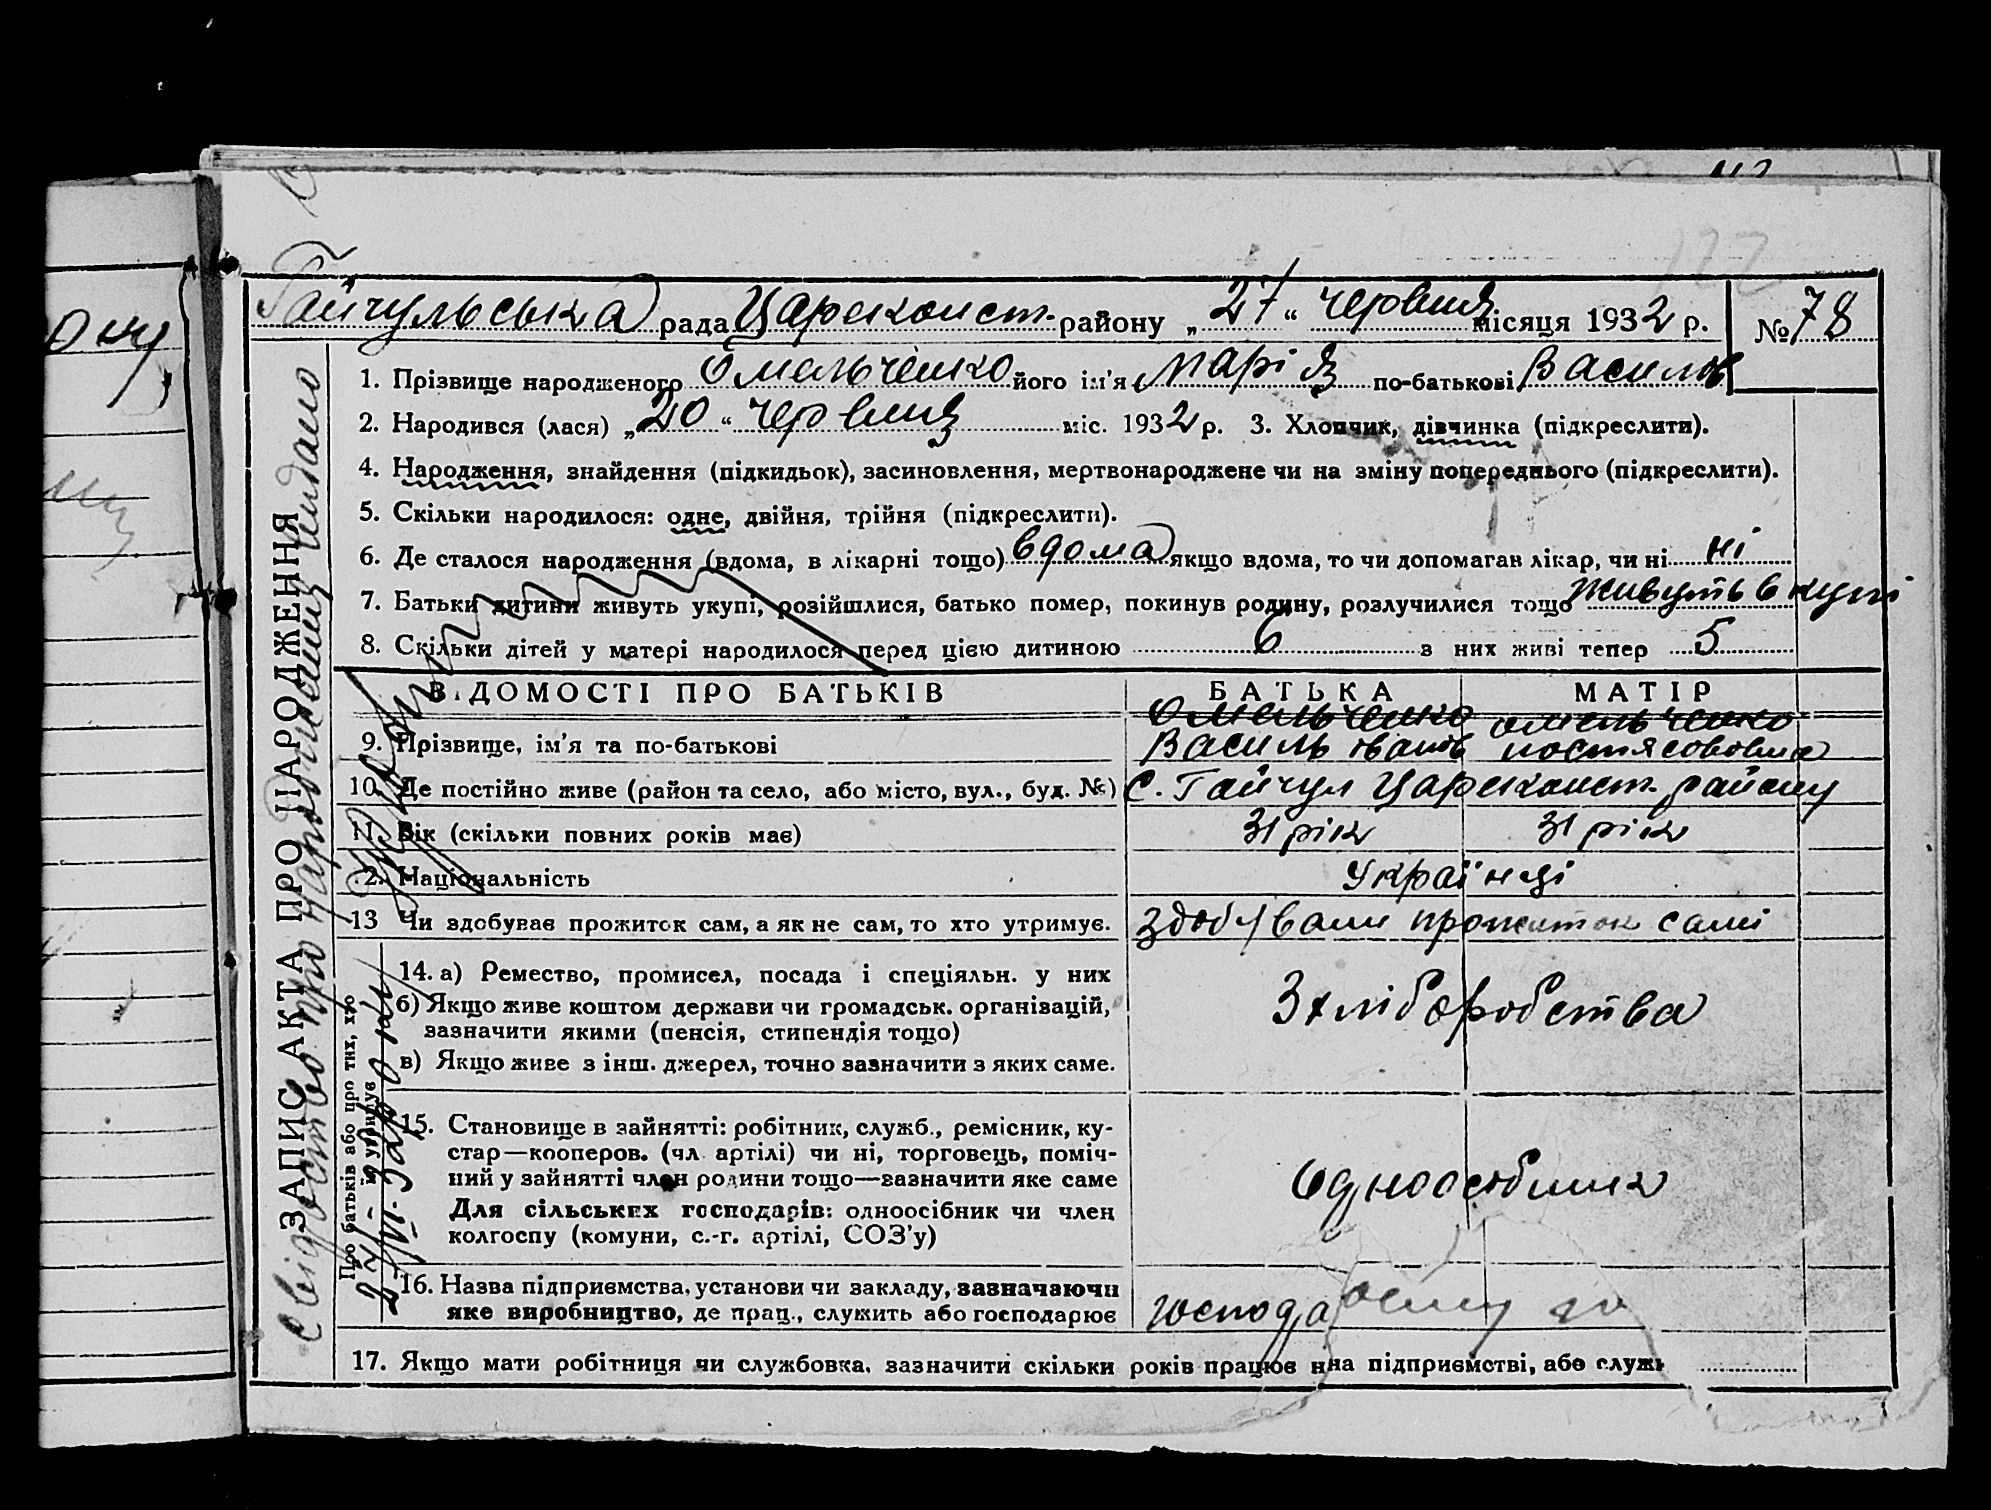 122
Гайчульська рада Царекконст. району „27“ червня місяця 1932 р. №78
1. Прізвище народженого Омельченко його ім'я Марія по-батькові Василів
2. Народився (лася) „20“ червня міс. 1932 р. 3. Хлопчик, дівчинка (підкреслити).
4. Народження, знайдення (підкидьок), засиновлення, мертвонароджене чи на зміну попереднього (підкреслити).
5. Скільки народилося: одне, двійня, трійня (підкреслити).
6. Де сталося народження (вдома, в лікарні тощо) вдома якщо вдома, то чи допомагав лікар, чи ні ні
7. Батьки дитини живуть укупі, розійшлися, батько помер, покинув родину, розлучилися тощо живуть в купі
8. Скільки дітей у матері народилося перед цією дитиною 6 з них живі тепер 5
ВІДОМОСТІ ПРО БАТЬКІВ БАТЬКА МАТІР
9. Прізвище, ім'я та по-батькові Омельченко Василь Іванів Омельченко
10. Де постійно живе (район та село, або місто, вул., буд. №) С. Гайчул Царекконст. району
11. Вік (скільки повних років має) 31 рік 31 рік
12. Національність Українці
13 Чи здобуває прожиток сам, а як не сам, то хто утримує. здобували прожиток самі
14. а) Ремество, промисел, посада і спеціяльн. у них
б) Якщо живе коштом держави чи громадськ. організацій,
зазначити якими (пенсія, стипендія тощо)
в) Якщо живе з інш. джерел, точно зазначити з яких саме.
З хліборобства
15. Становище в зайнятті: робітник, служб., ремісник, ку-
стар—кооперов. (чл. артілі) чи ні, торговець, поміч-
ний у зайнятті член родини тощо—зазначити яке саме
Для сільських господарів: одноосібник чи член
колгоспу (комуни, с.-г. артілі, СОЗ'у)
Одноосібник
16. Назва підприємства, установи чи закладу, зазначаючи
яке виробництво, де прац., служить або господарює
господа
17. Якщо мати робітниця чи службовка, зазначити скільки років працює на підприємстві, або служ
ЗАПИС АКТА ПРО НАРОДЖЕННЯ
Свідоцтво про народження видано
Про батьків або про тих, хто
їх утримує
27/VI-32р